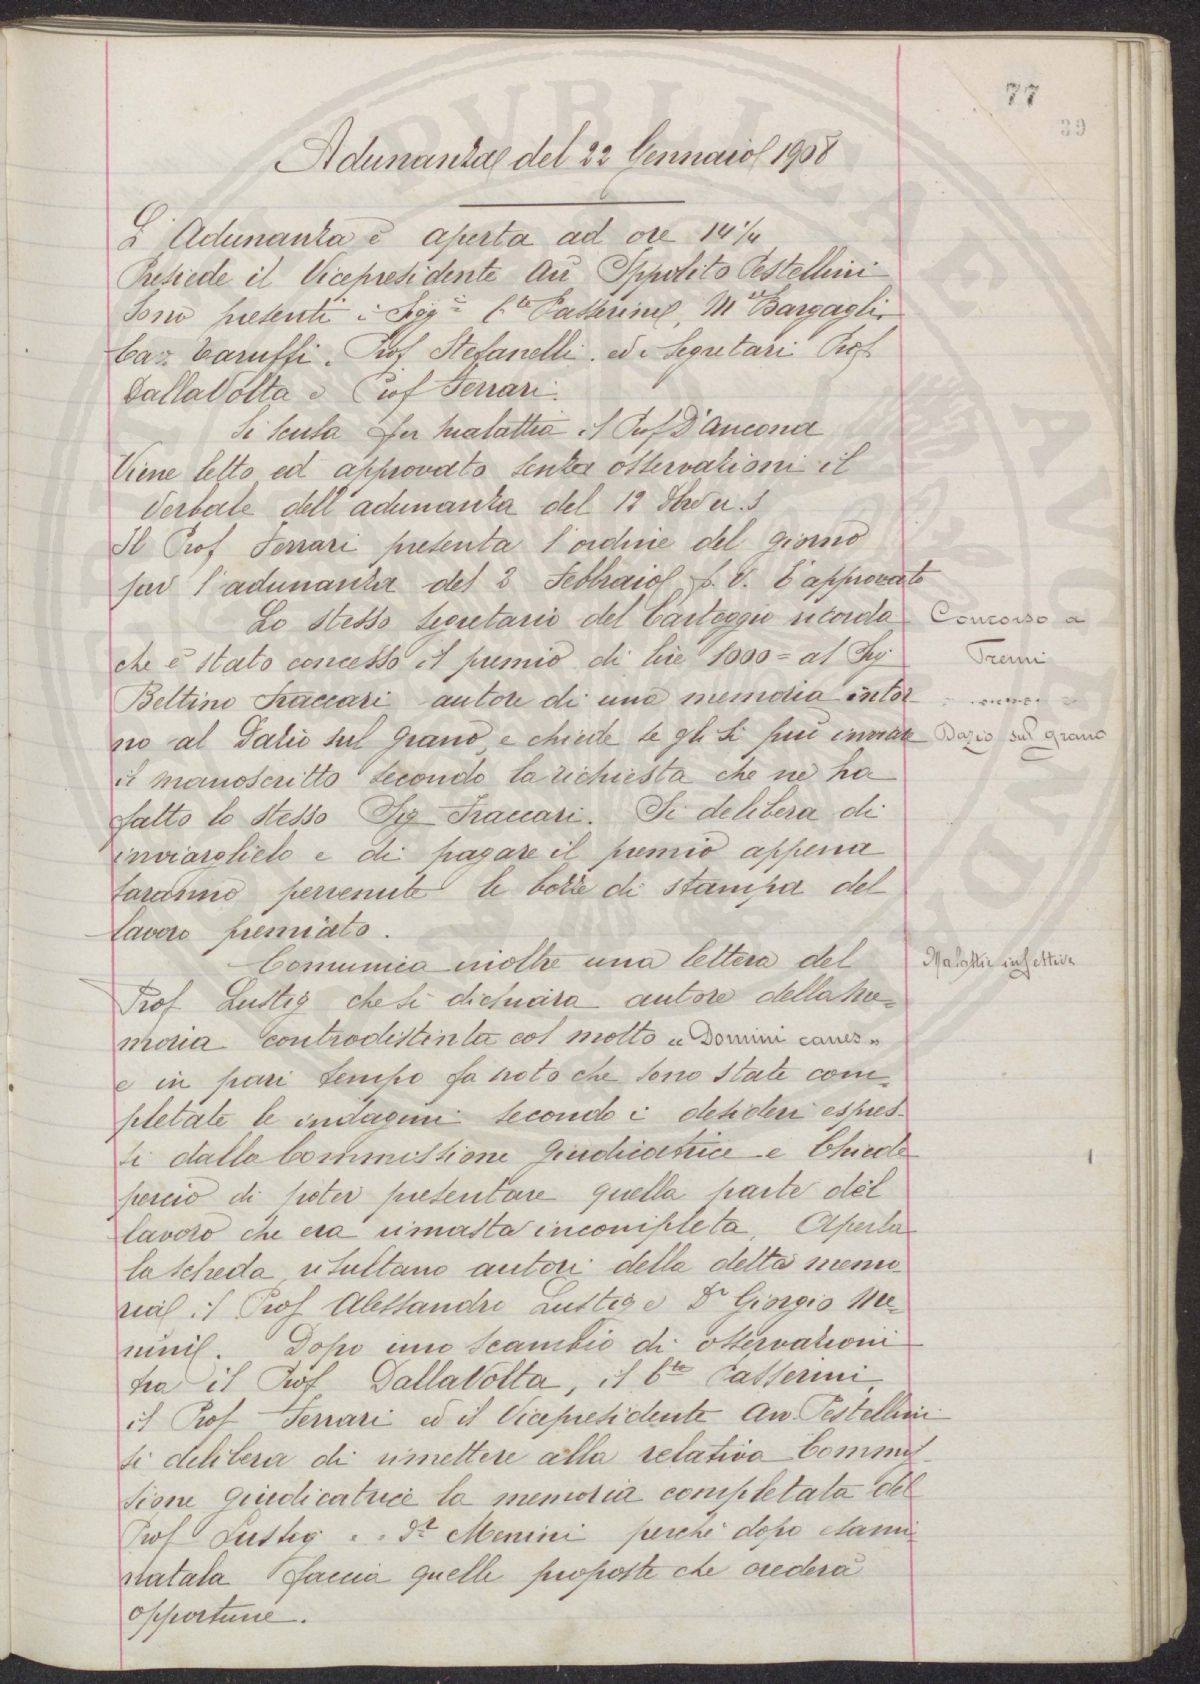 77
39
Adunanza del 22 Gennaio 1908
L'Adunanza è aperta ad ore 14 1/4
Presiede il Vicepresidente Avv Ippolito Pestellini
Sono presenti i Sigg.i C.te Passerini, M.se Bargagli,
Cav. Caruffi, Prof Stefanelli, ed i Segretari Prof
DallaVolta e Prof Ferrari.
Si scusa per malattia il Prof D'Ancona
Viene letto ed approvato senza osservazioni il
Verbale dell'adunanza del 12
Il Prof Ferrari presenta l'ordine del giorno
per l'adunanza del 2 Febbraio p. v. È approvato
Lo stesso segretario del Carteggio ricorda
Concorso a
che è stato concesso il premio di lire 1000= al Sig.
Premi
Bettino Fraccari autore di una memoria intor
no al Dazio sul grano, e chiede se gli si può inviare
Dazio sul grano
il manoscritto secondo la richiesta che ne ha
fatto lo stesso Sig Fraccari. Si delibera di
inviarglielo e di pagare il premio appena
saranno pervenute le bozze di stampa del
lavoro premiato.
Comunica inoltre una lettera del
Malattie infettive
Prof Lustig che si dichiara autore della me=
moria contradistinta col motto "Domini canes"
e in pari tempo fa noto che sono state com=
pletate le indagini secondo i desideri espres-
si dalla Commissione giudicatrice e Chiede
perciò di poter presentare quella parte del
lavoro che era rimasta incompleta. Aperta
la scheda, risultano autori della detta memo
ria il Prof Alessandro Lustig e D.r Giorgio Me=
nini. Dopo uno scambio di osservazioni
tra il Prof DallaVolta, il C.te Passerini,
il Prof Ferrari ed il Vicepresidente Avv. Pestellini
si delibera di rimettere alla relativa Commis
sione giudicatrice la memoria completata del
Prof Lustig e D.r Menini perché dopo esami
natala faccia quelle proposte che crederà
opportune.